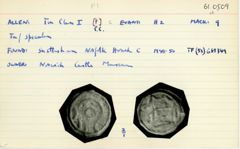 P1
61.0509
ALLEN: Tin Class I [P] = EVANS H2 MACK: 9
CC.
Tin/speculum
FOUND: Snettisham Norfolk Hoard C 1948-50
OWNER: Norwich Castle Museum
2/1